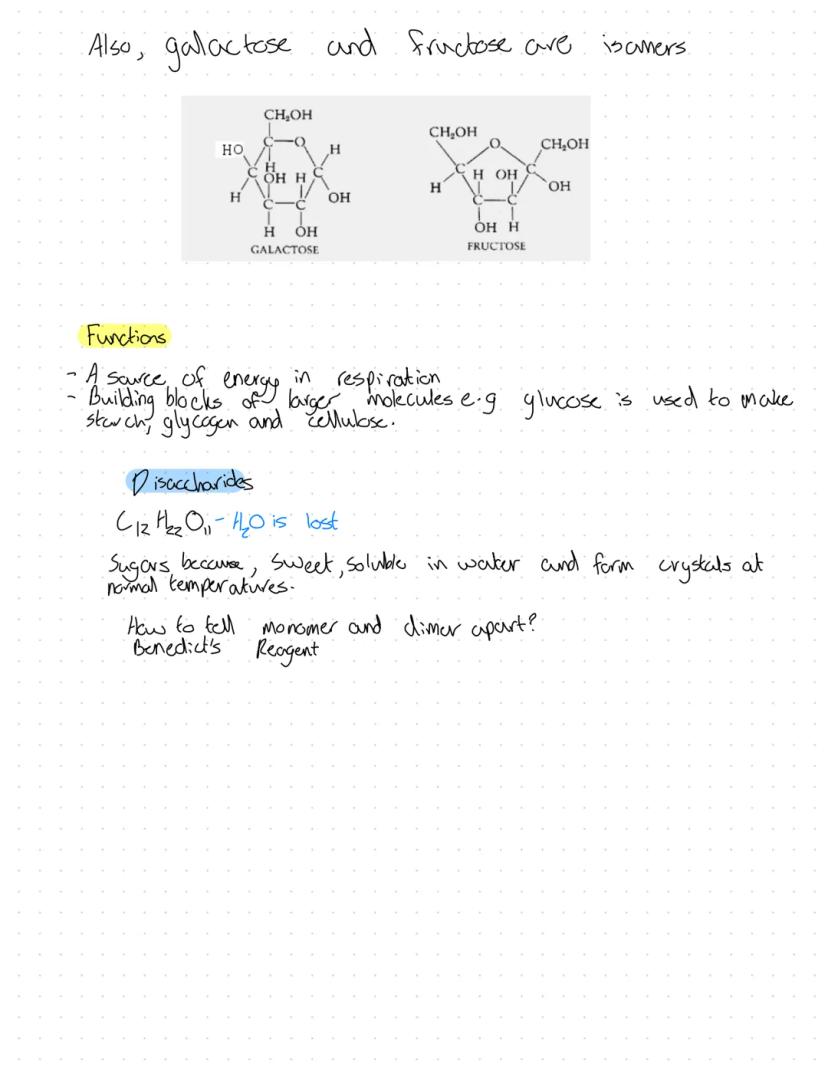 Also, galactose and fructose are isomers
CH₂OH
C—O
HO
H
H
C
OH H
C
H
OH
C—C
H OH
GALACTOSE
CH₂OH
O
CH₂OH
C
H OH
C
H
OH
C—C
OH H
FRUCTOSE
Functions
- A source of energy in respiration
- Building blocks of larger molecules e.g glucose is used to make
starch, glycogen and cellulose.
Disaccharides
C₁₂H₂₂O₁₁ - H₂O is lost
Sugars because, sweet, soluble in water and form crystals at
normal temperatures.
How to tell monomer and dimer apart?
Benedict's Reagent